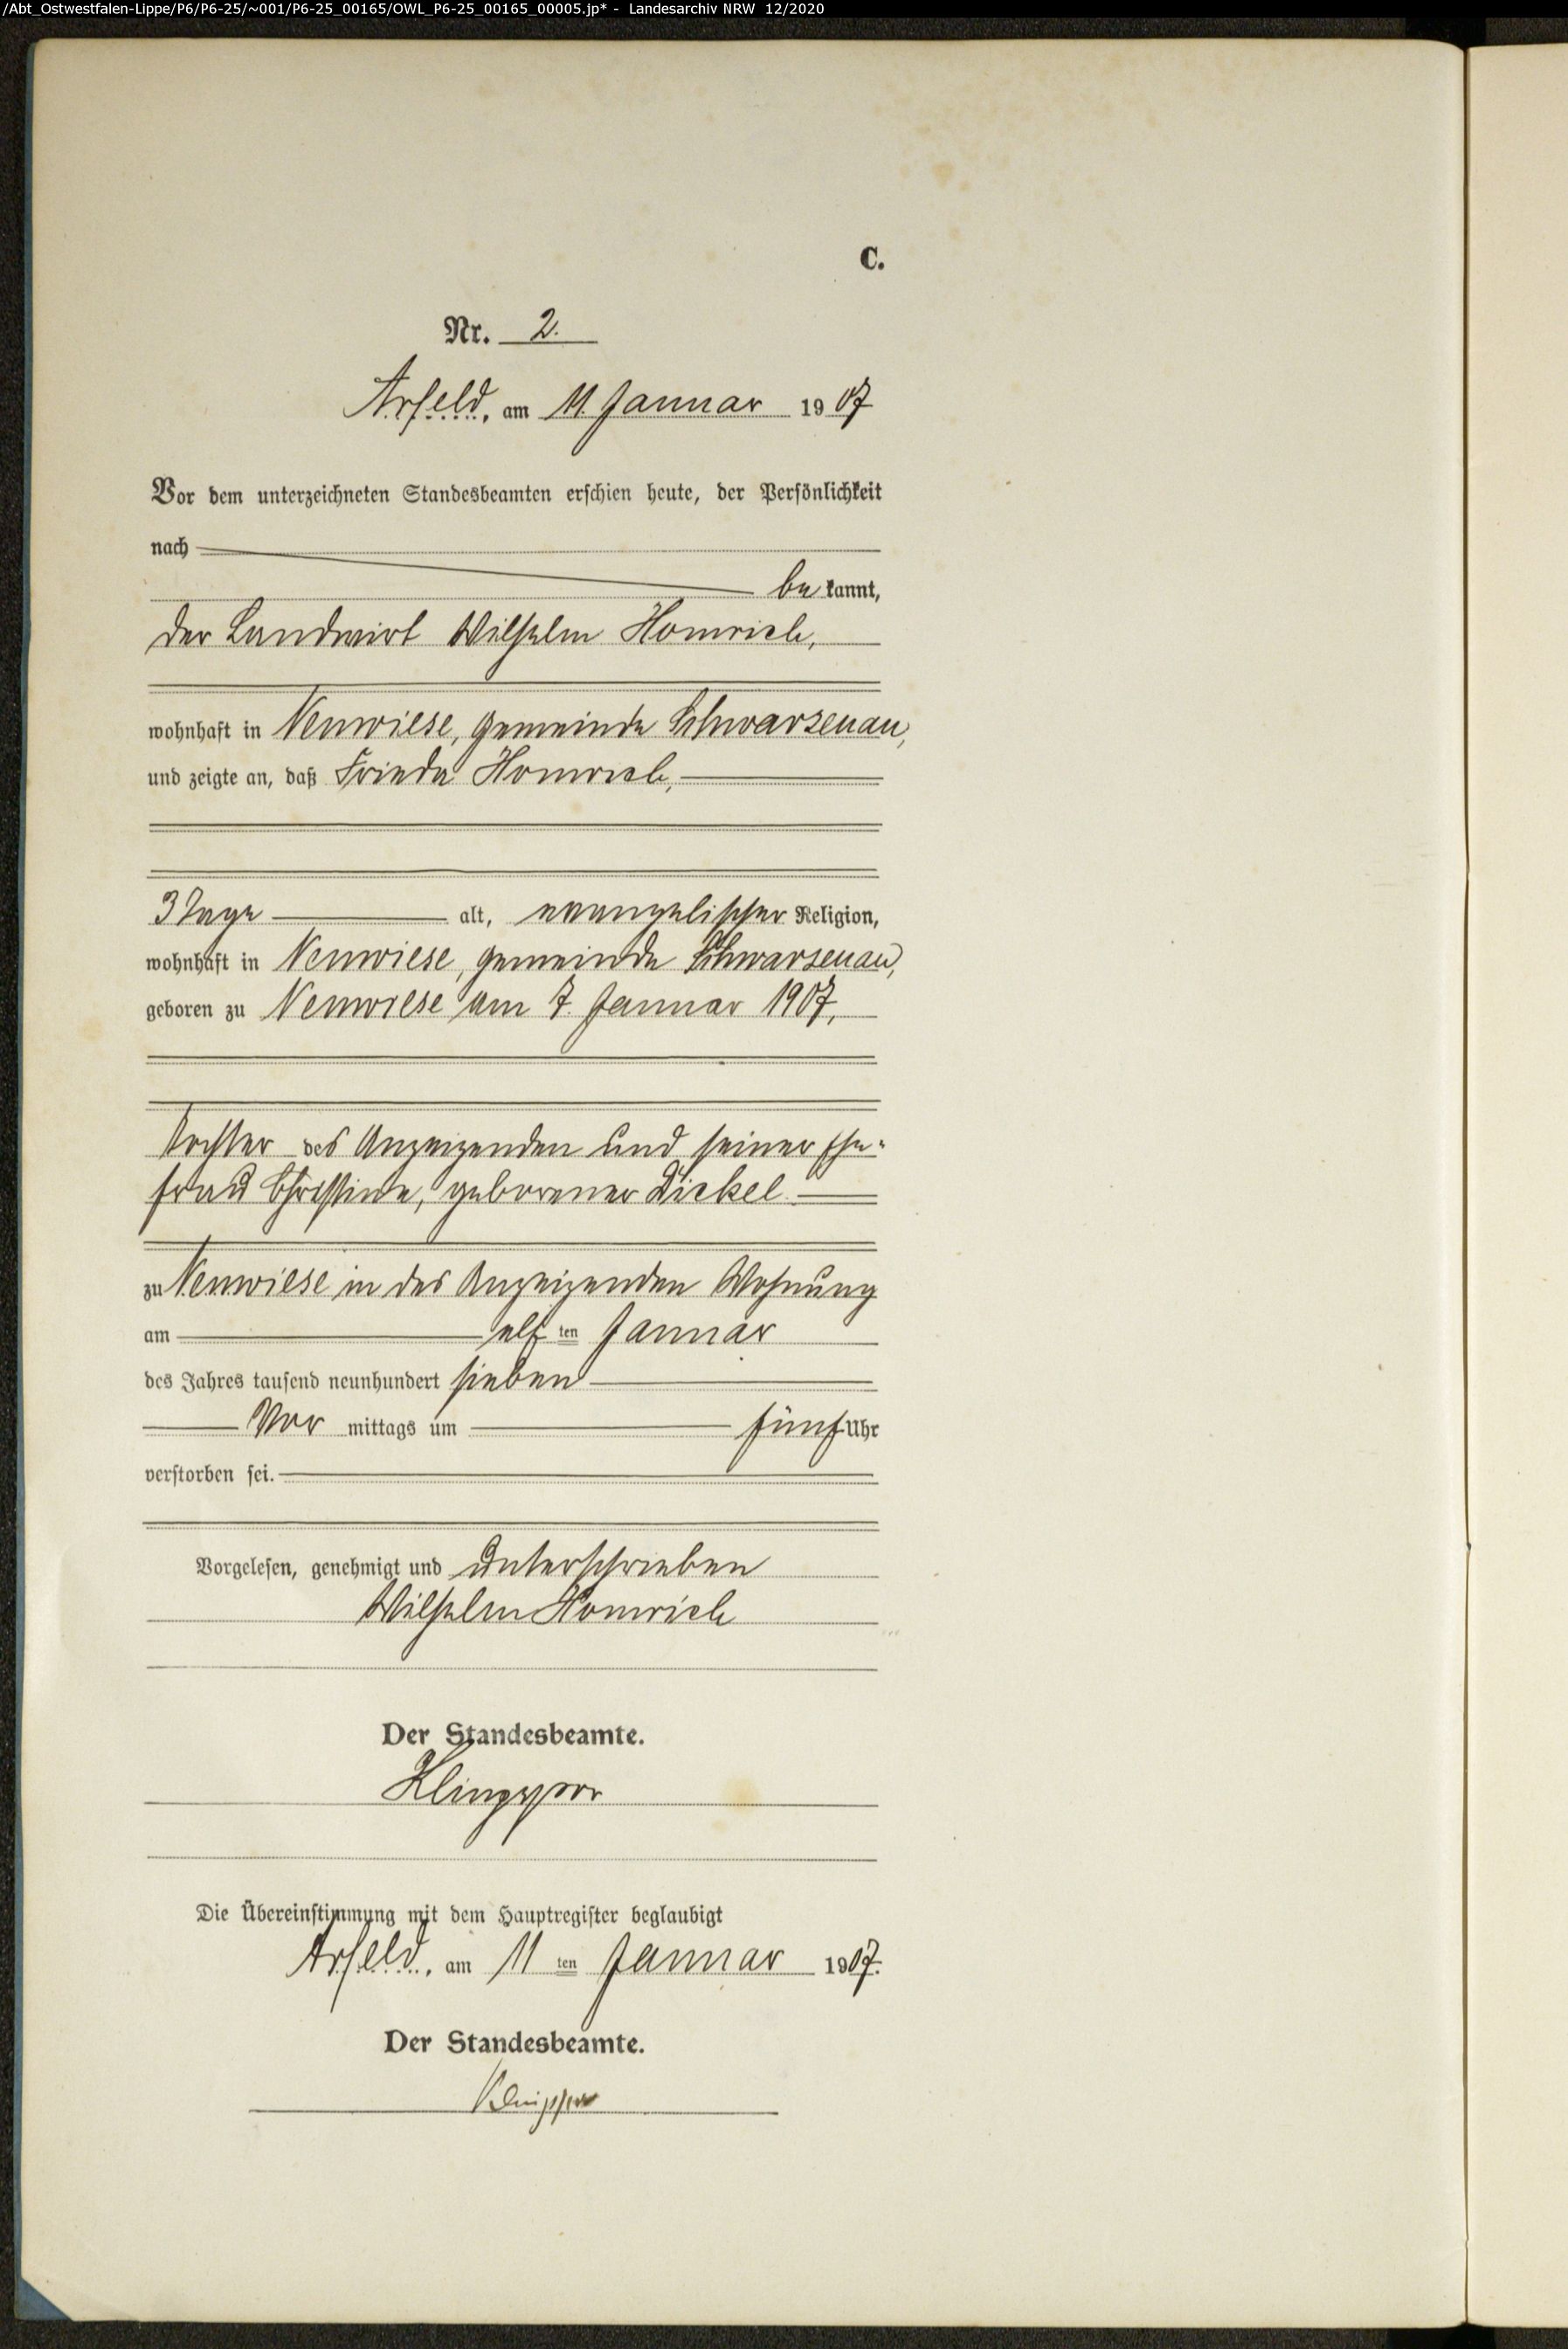 /Abt_Ostwestfalen-Lippe/P6/P6-25/~001/P6-25_00165/OWL_P6-25_00165_00005.jp* - Landesarchiv NRW 12/2020
C.
Nr. 2.
Arfeld, am 11. Januar 1907
Vor dem unterzeichneten Standesbeamten erschien heute, der Persönlichkeit
nach
bekannt,
der Landwirt Wilhelm Homrich,
wohnhaft in Neuwiese, Gemeinde Schwarzenau,
und zeigte an, daß Frieda Homrich,
3 Tage alt, evangelischer Religion,
wohnhaft in Neuwiese, Gemeinde Schwarzenau,
geboren zu Neuwiese am 7. Januar 1907,
Tochter des Anzeigenden und seiner Ehe-
frau Christine, geborener Dickel
zu Neuwiese in des Anzeigenden Wohnung
am elf ten Januar
des Jahres tausend neunhundert sieben
Vor mittags um fünf Uhr
verstorben sei.
Vorgelesen, genehmigt und unterschrieben
Wilhelm Homrich
Der Standesbeamte.
Klingspor
Die Übereinstimmung mit dem Hauptregister beglaubigt
Arfeld, am 11 ten Januar 1907.
Der Standesbeamte.
Klingspor